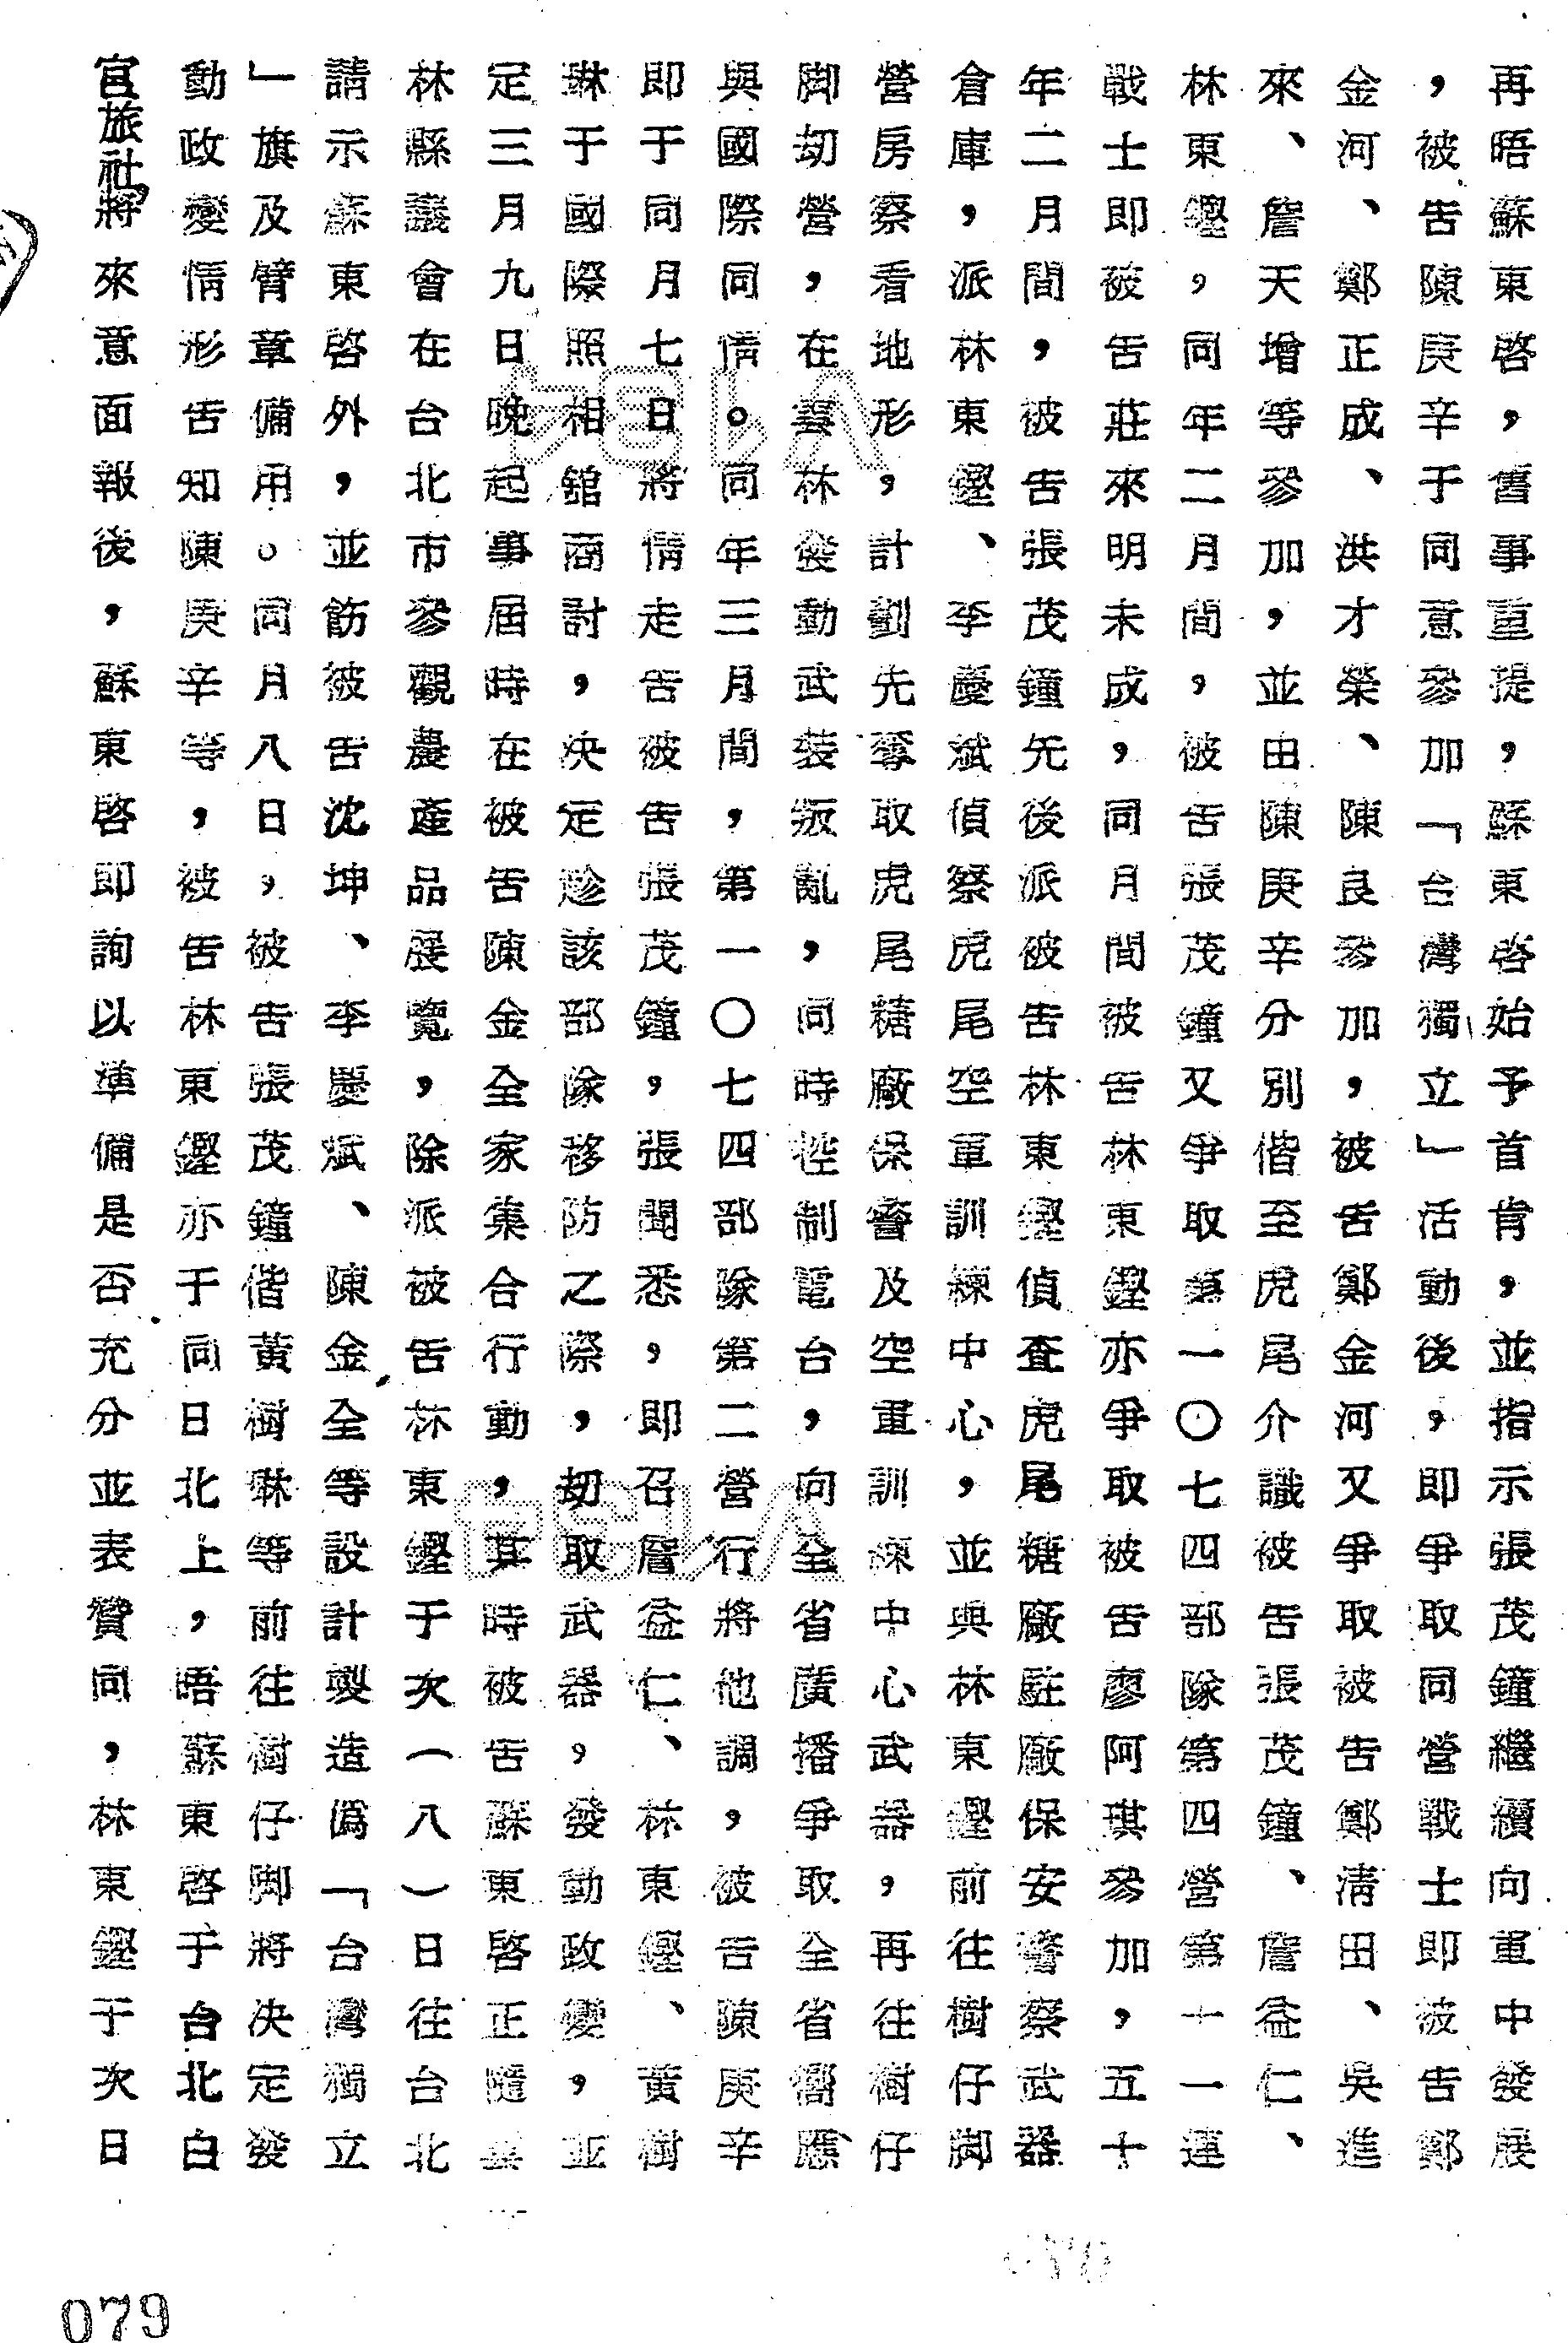 再晤蘇東啓，舊事重提，蘇東啓始予首肯，並指示張茂鐘繼續向軍中發展
，被告陳庚辛于同意參加「台灣獨立」活動後，即爭取同營戰士即被告鄭
金河、鄭正成、洪才榮、陳良參加，被告鄭金河又爭取被告鄭清田、吳進
來、詹天增等參加，並由陳庚辛分別偕至虎尾介識被告張茂鐘、詹益仁、
林東鏗，同年二月間，被告張茂鐘又爭取第一〇七四部隊第四營第十一連
戰士即被告莊來明未成，同月間被告林東鏗亦爭取被告廖阿琪參加，五十
年二月間，被告張茂鐘先後派被告林東鏗偵查虎尾糖廠駐廠保安警察武器
倉庫，派林東鏗、李慶斌偵察虎尾空軍訓練中心，並與林東鏗前往樹仔脚
營房察看地形，計劃先奪取虎尾糖廠保警及空軍訓練中心武器，再往樹仔
脚刧營，在雲林發動武裝叛亂，同時控制電台，向全省廣播爭取全省響應
與國際同情。同年三月間，第一〇七四部隊第二營行將他調，被告陳庚辛
即于同月七日將情走告被告張茂鐘，張聞悉，即召詹益仁、林東鏗、黃樹
琳于國際照相舘商討，決定趁該部隊移防之際，刧取武器，發動政變，並
定三月九日晚起事屆時在被告陳金全家集合行動，其時被告蘇東啓正隨雲
林縣議會在台北市參觀農產品展覽，除派被告林東鏗于次（八）日往台北
請示蘇東啓外，並飭被告沈坤、李慶斌、陳金全等設計製造僞「台灣獨立
」旗及臂章備用。同月八日，被告張茂鐘偕黃樹琳等前往樹仔脚將決定發
動政變情形告知陳庚辛等，被告林東鏗亦于同日北上，晤蘇東啓于台北白
宮旅社，將來意面報後，蘇東啓即詢以準備是否充分並表贊同，林東鏗于次日
079